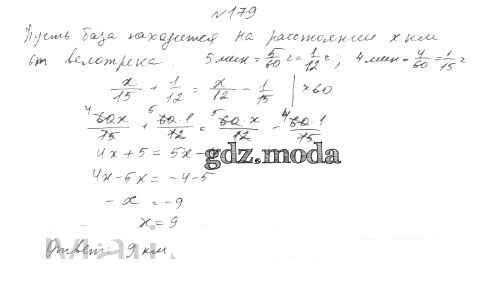 №179
Пусть база находится на расстоянии x км
от велотрека. 5 мин = 5/60 ч = 1/12 ч; 4 мин = 4/60 = 1/15 ч
x/15 + 1/12 = x/12 - 1/15 | ×60
4 60x/15 + 5 60·1/12 = 5 60·x/12 - 4 60·1/15
4x + 5 = 5x -
gdz.moda
4x - 5x = -4 - 5
- x = -9
x = 9
Ответ: 9 км.